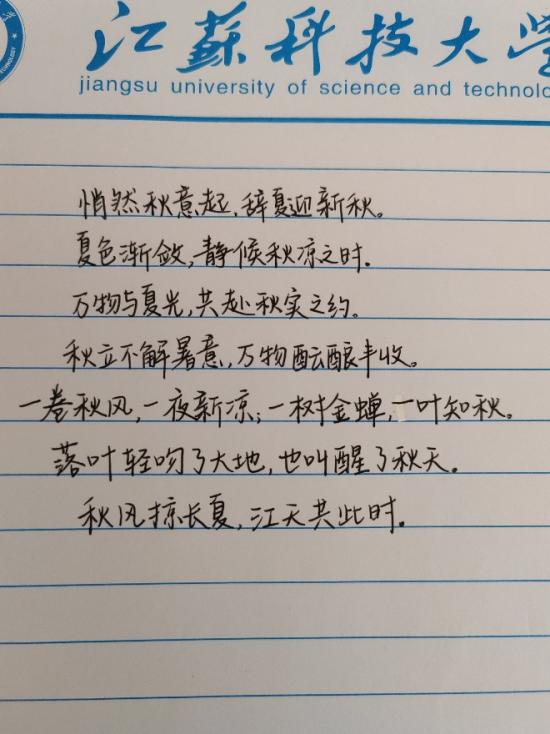 江蘇科技大學
jiangsu university of science and technolo
悄然秋意起,辞夏迎新秋。
夏色渐敛,静候秋凉之时.
万物与夏光,共赴秋实之约.
秋立不解暑意,万物酝酿丰收。
一卷秋风,一夜新凉;一树金蝉,一叶知秋。
落叶轻吻了大地,也叫醒了秋天.
秋风掠长夏,江天共此时.